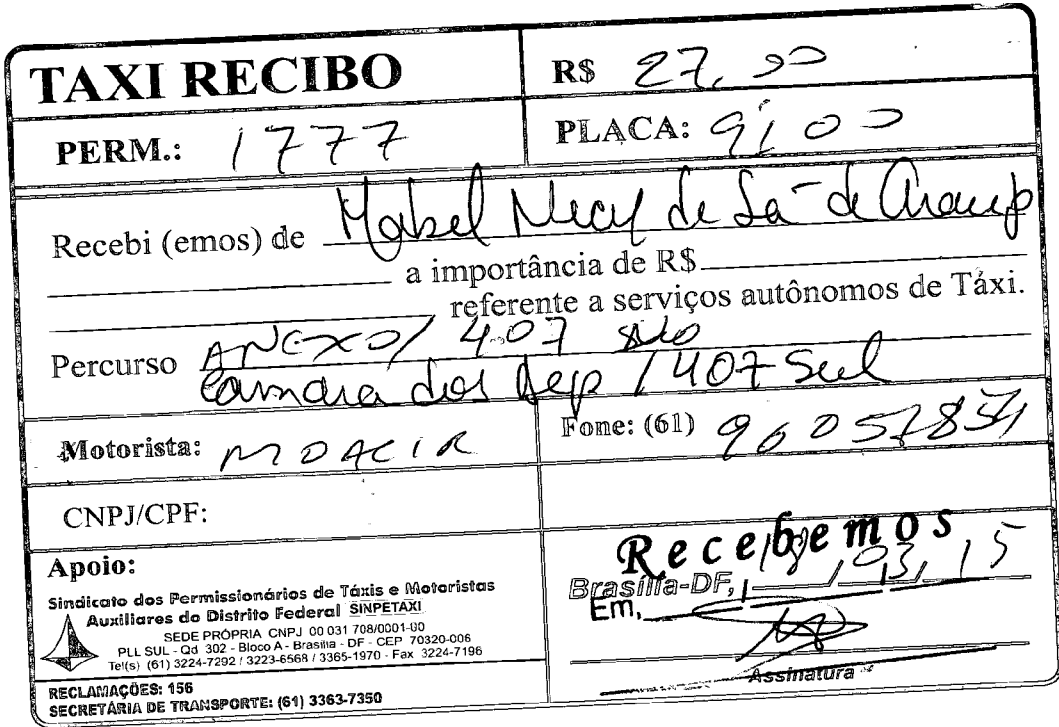 TAXI RECIBO
R$ 27,00
PERM.: 1777
PLACA: 9100
Recebi (emos) de Mabel Necy de Sá de Araujo
a importância de R$
referente a serviços autônomos de Táxi.
Percurso ANEXO / 407 SUL
Camara dos Dep / 407 Sul
Motorista: MOACIR
Fone: (61)
CNPJ/CPF:
Apoio:
Sindicato dos Permissionários de Táxis e Motoristas
Auxiliares do Distrito Federal SINPETAXI
SEDE PRÓPRIA CNPJ 00 031 708/0001-00
PLL SUL - Qd 302 - Bloco A - Brasília - DF - CEP 70320-006
Tel(s) (61) 3224-7292 / 3223-6568 / 3365-1970 - Fax 3224-7196
RECLAMAÇÕES: 156
SECRETÁRIA DE TRANSPORTE: (61) 3363-7350
Recebemos
Brasília-DF, 18 / 03 / 15
Em,
Assinatura